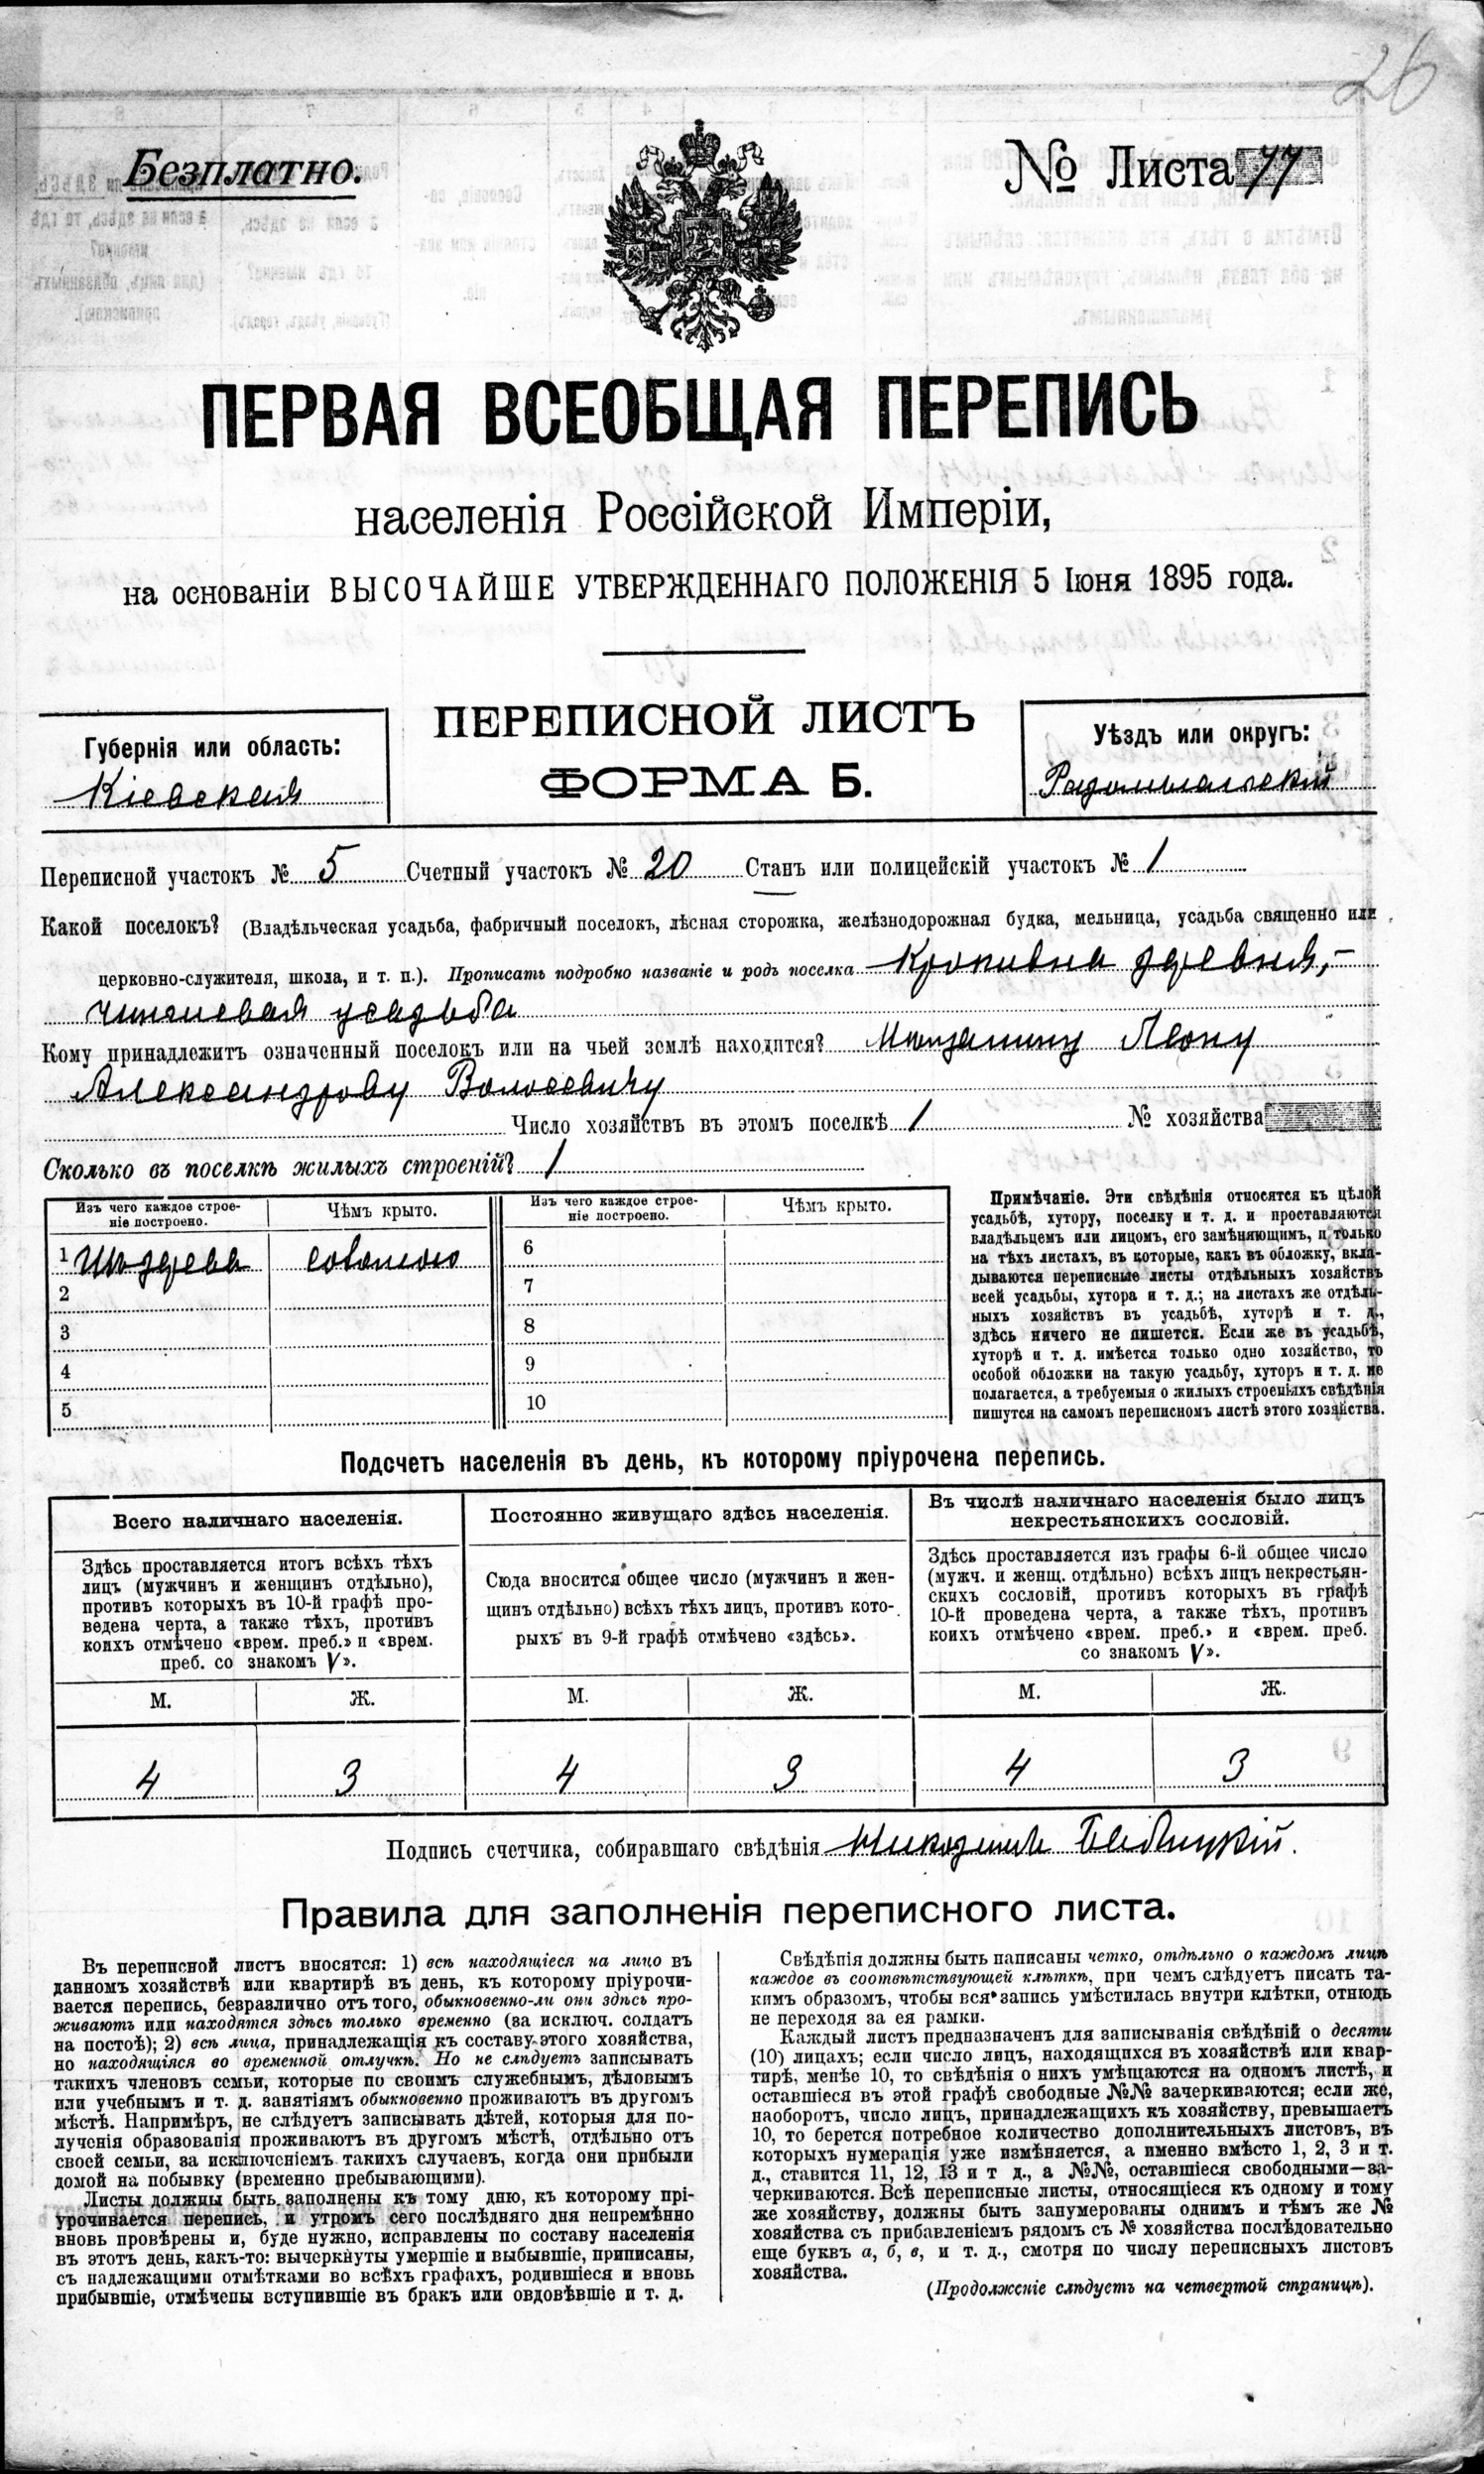 26
Безплатно.
№ Листа 77
ПЕРВАЯ ВСЕОБЩАЯ ПЕРЕПИСЬ
населенія Россійской Имперіи,
на основаніи ВЫСОЧАЙШЕ УТВЕРЖДЕННАГО ПОЛОЖЕНІЯ 5 Іюня 1895 года.
ПЕРЕПИСНОЙ ЛИСТЪ
ФОРМА Б.
Губернія или область:
Кіевская
Уѣздъ или округъ:
Радомысльскій
Переписной участокъ № 5 Счетный участокъ № 20 Станъ или полицейскій участокъ № 1
Какой поселокъ? (Владѣльческая усадьба, фабричный поселокъ, лѣсная сторожка, желѣзнодорожная будка, мельница, усадьба священно или
церковно-служителя, школа, и т. п.). Прописать подробно названіе и родъ поселка Кропивна деревня,-
чиншевая усадьба
Кому принадлежитъ означенный поселокъ или на чьей землѣ находится? Мѣщанину Леону
Александрову Волосевичу
Число хозяйствъ въ этомъ поселкѣ 1 № хозяйства
Сколько въ поселкѣ жилыхъ строеній? 1
Изъ чего каждое строе-
ніе построено.
Чѣмъ крыто.
Изъ чего каждое строе-
ніе построено.
Чѣмъ крыто.
1 Изъ древа соломою
2
3
4
5
6
7
8
9
10
Примѣчаніе. Эти свѣдѣнія относятся къ цѣлой
усадьбѣ, хутору, поселку и т. д. и проставляются
владѣльцемъ или лицомъ, его замѣняющимъ, и только
на тѣхъ листахъ, въ которые, какъ въ обложку, вкла-
дываются переписные листы отдѣльныхъ хозяйствъ
всей усадьбы, хутора и т. д.; на листахъ же отдѣль-
ныхъ хозяйствъ въ усадьбѣ, хуторѣ и т. д.,
здѣсь ничего не пишется. Если же въ усадьбѣ,
хуторѣ и т. д. имѣется только одно хозяйство, то
особой обложки на такую усадьбу, хуторъ и т. д. не
полагается, а требуемыя о жилыхъ строеніяхъ свѣдѣнія
пишутся на самомъ переписномъ листѣ этого хозяйства.
Подсчетъ населенія въ день, къ которому пріурочена перепись.
Всего наличнаго населенія.
Здѣсь проставляется итогъ всѣхъ тѣхъ
лицъ (мужчинъ и женщинъ отдѣльно),
противъ которыхъ въ 10-й графѣ про-
ведена черта, а также тѣхъ, противъ
коихъ отмѣчено «врем. преб.» и «врем.
преб. со знакомъ V».
М. Ж.
4 3
Постоянно живущаго здѣсь населенія.
Сюда вносится общее число (мужчинъ и жен-
щинъ отдѣльно) всѣхъ тѣхъ лицъ, противъ кото-
рыхъ въ 9-й графѣ отмѣчено «здѣсь».
М. Ж.
4 3
Въ числѣ наличнаго населенія было лицъ
некрестьянскихъ сословій.
Здѣсь проставляется изъ графы 6-й общее число
(мужч. и женщ. отдѣльно) всѣхъ лицъ некрестьян-
скихъ сословій, противъ которыхъ въ графѣ
10-й проведена черта, а также тѣхъ, противъ
коихъ отмѣчено «врем. преб.» и «врем. преб.
со знакомъ V».
М. Ж.
4 3
Подпись счетчика, собиравшаго свѣдѣнія Никодимъ
Правила для заполненія переписного листа.
Въ переписной листъ вносятся: 1) всѣ находящіеся на лицо въ
данномъ хозяйствѣ или квартирѣ въ день, къ которому пріурочи-
вается перепись, безразлично отъ того, обыкновенно-ли они здѣсь про-
живаютъ или находятся здѣсь только временно (за исключ. солдатъ
на постоѣ); 2) всѣ лица, принадлежащія къ составу этого хозяйства,
но находящіяся во временной отлучкѣ. Но не слѣдуетъ записывать
такихъ членовъ семьи, которые по своимъ служебнымъ, дѣловымъ
или учебнымъ и т. д. занятіямъ обыкновенно проживаютъ въ другомъ
мѣстѣ. Напримѣръ, не слѣдуетъ записывать дѣтей, которыя для по-
лученія образованія проживаютъ въ другомъ мѣстѣ, отдѣльно отъ
своей семьи, за исключеніемъ такихъ случаевъ, когда они прибыли
домой на побывку (временно пребывающими).
Листы должны быть заполнены къ тому дню, къ которому прі-
урочивается перепись, и утромъ сего послѣдняго дня непремѣнно
вновь провѣрены и, буде нужно, исправлены по составу населенія
въ этотъ день, какъ-то: вычеркнуты умершіе и выбывшіе, приписаны,
съ надлежащими отмѣтками во всѣхъ графахъ, родившіеся и вновь
прибывшіе, отмѣчены вступившіе въ бракъ или овдовѣвшіе и т. д.
Свѣдѣнія должны быть написаны четко, отдѣльно о каждомъ лицѣ
каждое въ соотвѣтствующей клѣткѣ, при чемъ слѣдуетъ писать та-
кимъ образомъ, чтобы вся запись умѣстилась внутри клѣтки, отнюдь
не переходя за ея рамки.
Каждый листъ предназначенъ для записыванія свѣдѣній о десяти
(10) лицахъ; если число лицъ, находящихся въ хозяйствѣ или квар-
тирѣ, менѣе 10, то свѣдѣнія о нихъ умѣщаются на одномъ листѣ, и
оставшіеся въ этой графѣ свободные №№ зачеркиваются; если же,
наоборотъ, число лицъ, принадлежащихъ къ хозяйству, превышаетъ
10, то берется потребное количество дополнительныхъ листовъ, въ
которыхъ нумерація уже измѣняется, а именно вмѣсто 1, 2, 3 и т.
д., ставится 11, 12, 13 и т д., а №№, оставшіеся свободными—за-
черкиваются. Всѣ переписные листы, относящіеся къ одному и тому
же хозяйству, должны быть занумерованы однимъ и тѣмъ же №
хозяйства съ прибавленіемъ рядомъ съ № хозяйства послѣдовательно
еще буквъ а, б, в, и т. д., смотря по числу переписныхъ листовъ
хозяйства.
(Продолженіе слѣдуетъ на четвертой страницѣ).